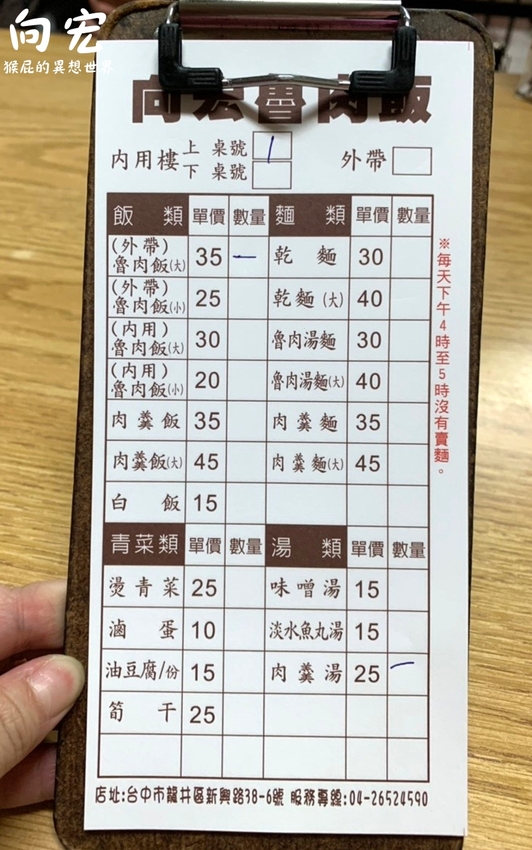 向宏
猴屁的異想世界
向宏魯肉飯
內用樓上 桌號 1 外帶
下 桌號
飯類 單價 數量 麵類 單價 數量
(外帶)魯肉飯(大) 35 一 乾麵 30
(外帶)魯肉飯(小) 25 乾麵(大) 40
(內用)魯肉飯(大) 30 魯肉湯麵 30
(內用)魯肉飯(小) 20 魯肉湯麵(大) 40
肉羹飯 35 肉羹麵 35
肉羹飯(大) 45 肉羹麵(大) 45
白飯 15
※每天下午4時至5時沒有賣麵。
青菜類 單價 數量 湯類 單價 數量
燙青菜 25 味噌湯 15
滷蛋 10 淡水魚丸湯 15
油豆腐/份 15 肉羹湯 25 一
筍干 25
店址:台中市龍井區新興路38-6號 服務專線:04-26524590